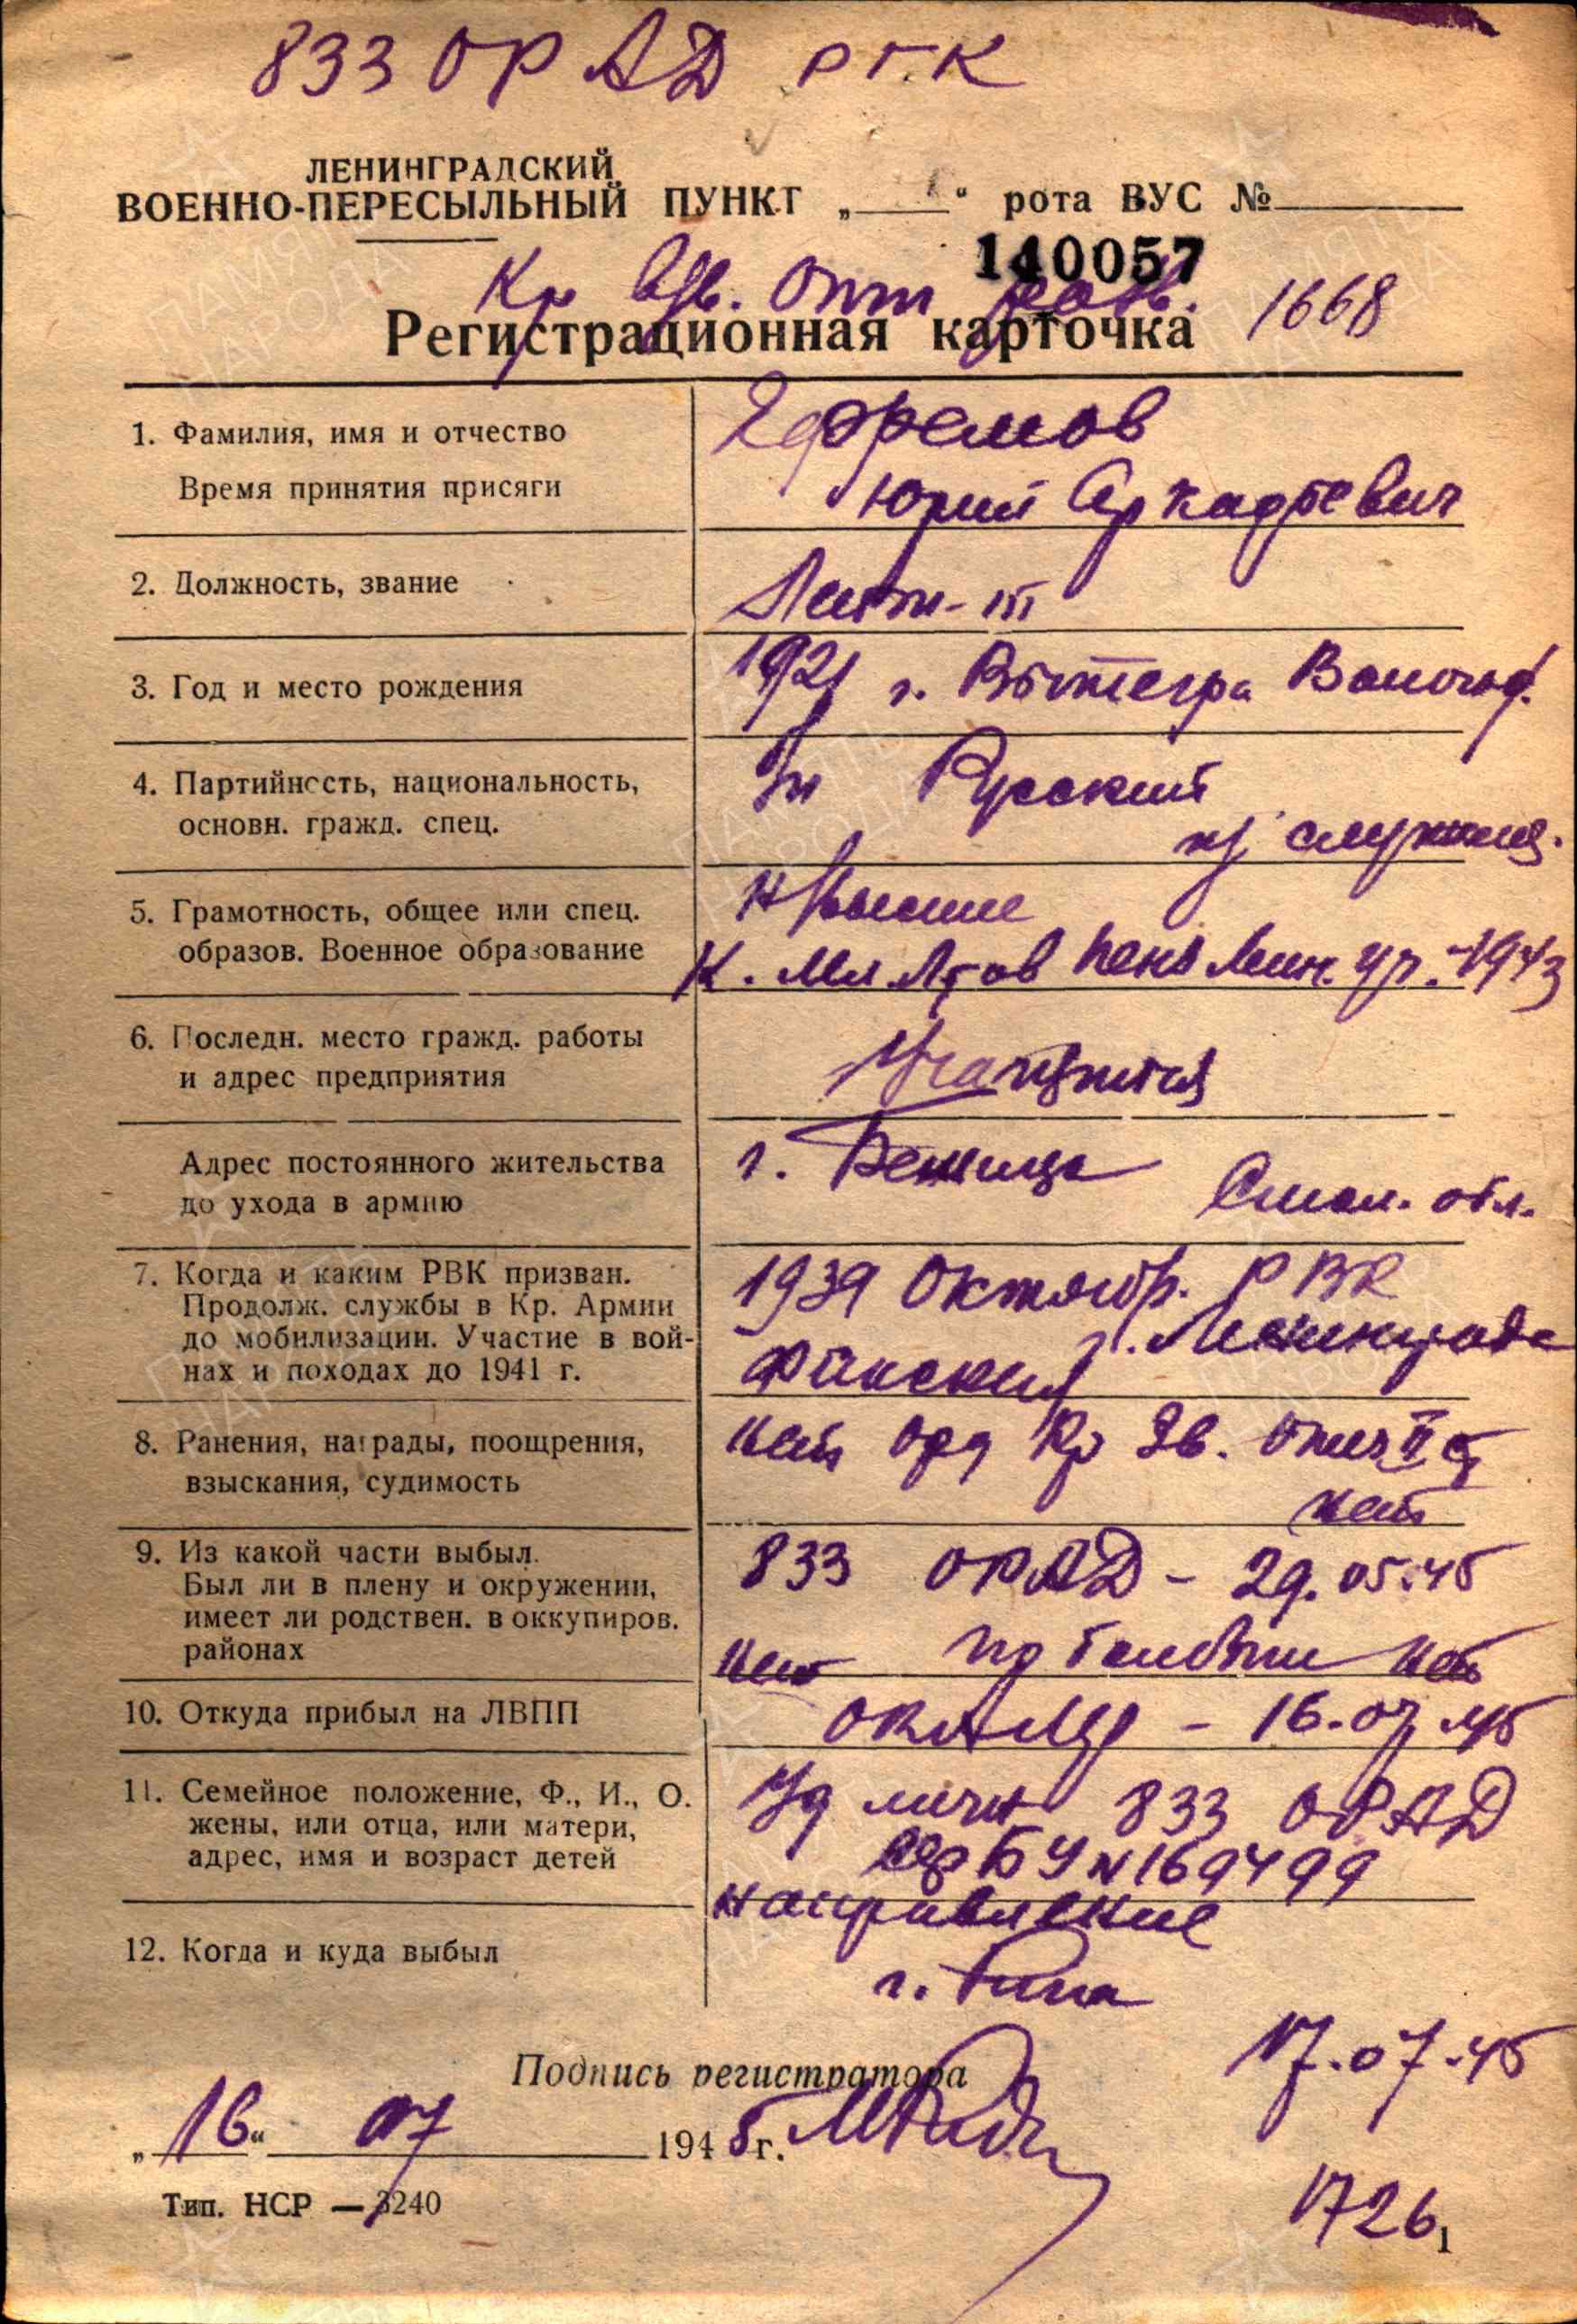 833 ОРАД РГК
ЛЕНИНГРАДСКИЙ
ВОЕННО-ПЕРЕСЫЛЬНЫЙ ПУНКТ „ “ рота ВУС №
140057
Кр взв. опт разв. 1668
Регистрационная карточка
1. Фамилия, имя и отчество
Ефремов
Время принятия присяги
Юрий Аркадьевич
2. Должность, звание
Лейтн-т
3. Год и место рождения
1921 г. Вытегра Вологод.
4. Партийность, национальность,
б/п Русский
основн. гражд. спец.
из служащ.
5. Грамотность, общее или спец.
н/высшее
образов. Военное образование
Лен. уч. 1943
6. Последн. место гражд. работы
и адрес предприятия
Учащийся
Адрес постоянного жительства
г. Бежица
до ухода в армию
Смол. обл.
7. Когда и каким РВК призван.
1939 Октябр. РВК
Продолж. службы в Кр. Армии
до мобилизации. Участие в вой-
г. Ленинграда
нах и походах до 1941 г.
Финския
8. Ранения, награды, поощрения,
нет орд Кр Зв. Отеч II ст
взыскания, судимость
нет
9. Из какой части выбыл.
833 ОРАД - 29.05.45
Был ли в плену и окружении,
имеет ли родствен. в оккупиров.
районах
нет по болезни нет
10. Откуда прибыл на ЛВПП
- 16.07.45
11. Семейное положение, Ф., И., О.
Уд личн 833 ОРАД
жены, или отца, или матери,
адрес, имя и возраст детей
БУ N 169499
направление
12. Когда и куда выбыл
г. Рига
17.07.45
Подпись регистратора
„16“ 07 1945 г.
Тип. НСР — 3240
1726
1